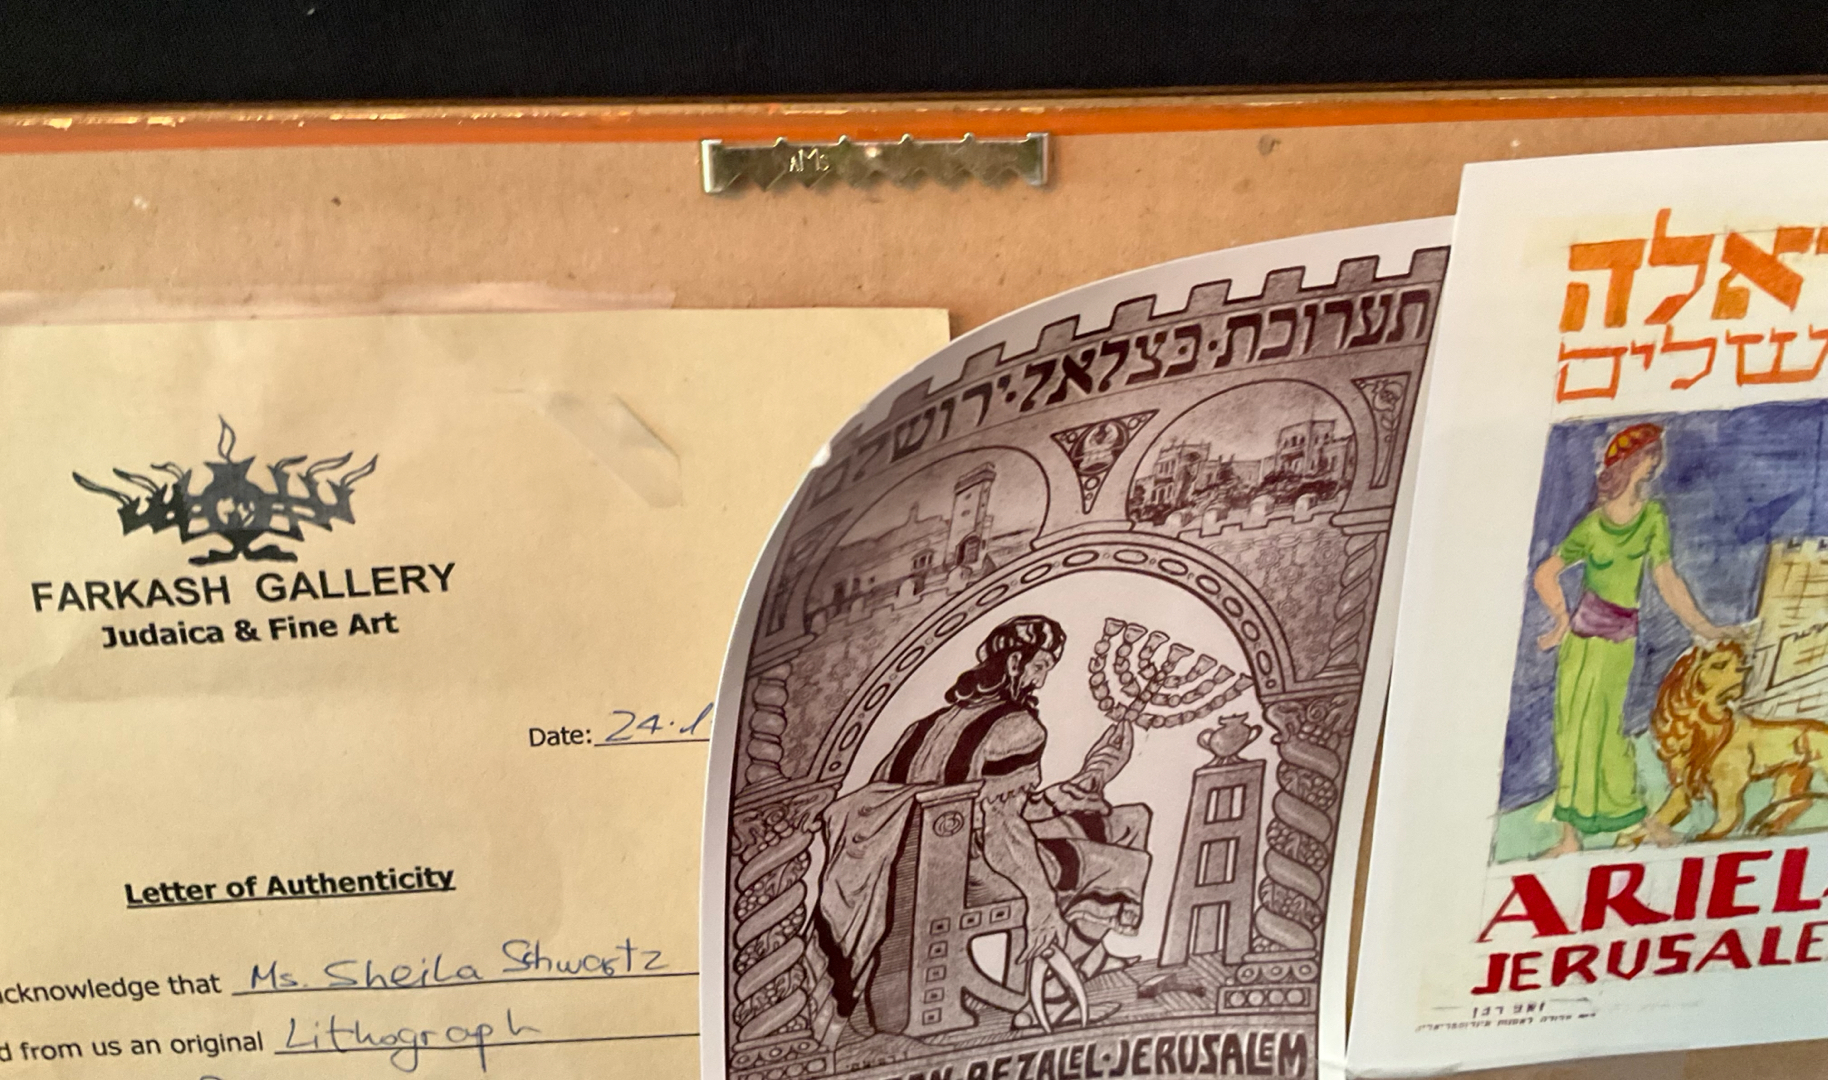 AMS
FARKASH GALLERY
Judaica & Fine Art
Date: 24.1
Letter of Authenticity
acknowledge that Ms. Sheila Schwartz
d from us an original Lithograph
תערוכת·בצלאל·ירושלם
BEZALEL·JERUSALEM
אלה
שלים
ARIEL
JERUSALE